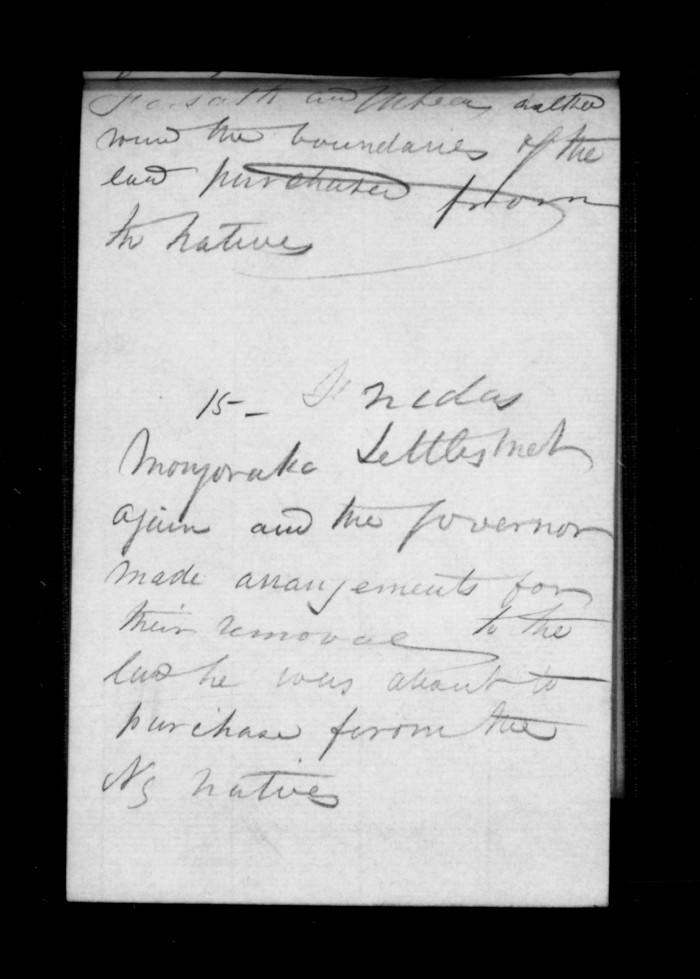 and walked
round the boundaries of the
land purchased from
the Natives
15 -
Settlesment
again and the Governor
made arrangements for
their removal to the
land he was about to
purchase from the
Ng natives